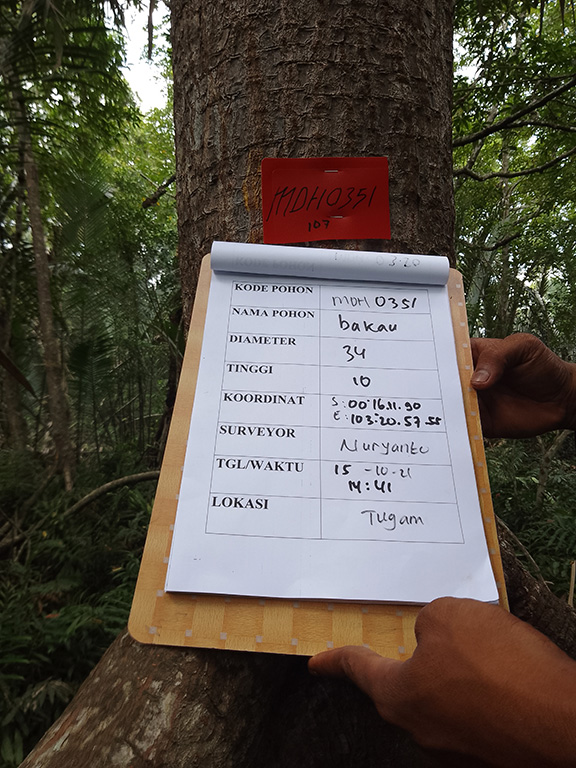 MDH0351
107
03.20
KODE POHON MDH 0351
NAMA POHON bakau
DIAMETER 34
TINGGI 10
KOORDINAT S: 00°16.11.90
E: 103.20.57.55
SURVEYOR Nuryanto
TGL/WAKTU 15 -10-21
14:41
LOKASI Tugam